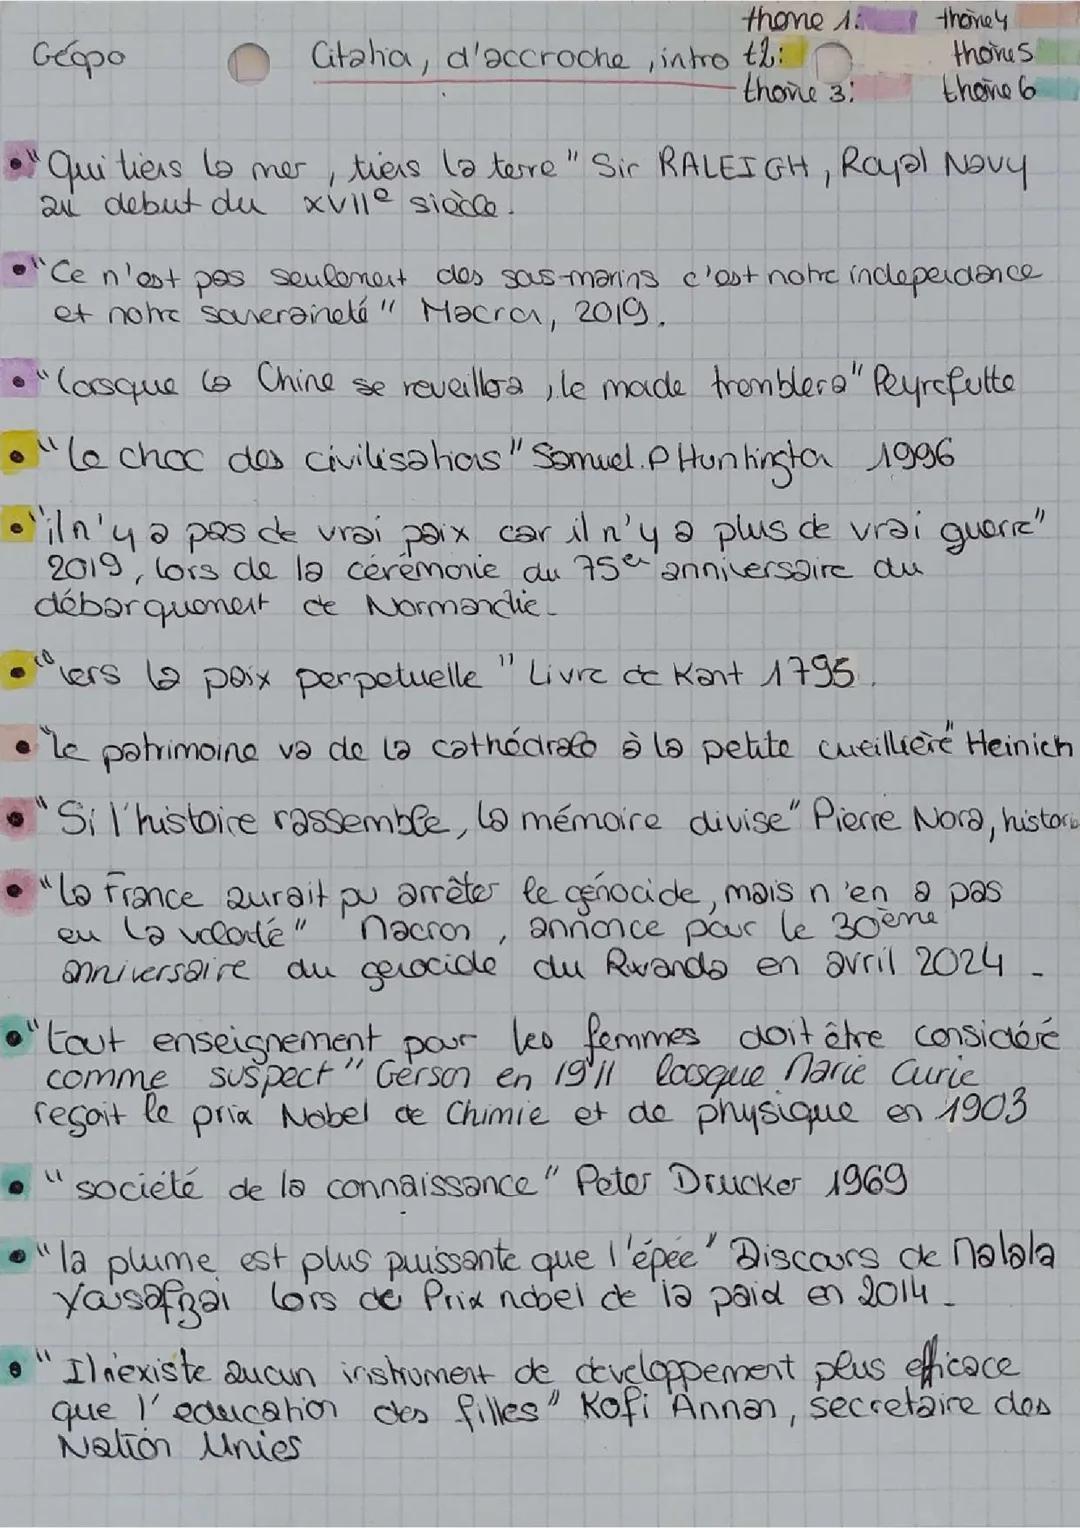 Géopo
Citation, d'accroche, intro
thème 1:
t2:
thème 3:
thème 4
thème 5
thème 6
• "Qui tiens la mer, tiens la terre" Sir RALEIGH, Royal Navy
au debut du XVIIe siècle.
• "Ce n'est pas seulement des sous-marins c'est notre independance
et notre souveraineté" Macron, 2019.
• "lorsque la Chine se reveillera, le monde tremblera" Peyrefutte
• "le choc des civilisations" Samuel.P Huntington 1996
• "il n'y a pas de vrai paix car il n'y a plus de vrai guerre"
2019, lors de la cérémonie du 75e anniversaire du
débarquement de Normandie.
• "vers la paix perpetuelle" Livre de Kant 1795.
• "le patrimoine va de la cathédrale à la petite cueillière" Heinich
• "Si l'histoire rassemble, la mémoire divise" Pierre Nora, histori
• "la France aurait pu arrêter le génocide, mais n'en a pas
eu la volonté" Macron, annonce pour le 30ème
anniversaire du genocide du Rwanda en avril 2024.
• "tout enseignement pour les femmes doit être considéré
comme suspect" Gerson en 1911 lorsque Marie Curie
reçoit le prix Nobel de Chimie et de physique en 1903
• "société de la connaissance" Peter Drucker 1969
• "la plume est plus puissante que l'épée" Discours de Malala
Yousafzai lors de Prix nobel de la paid en 2014.
• "Il n'existe aucun instrument de developpement plus efficace
que l'education des filles" Kofi Annan, secretaire des
Nation Unies